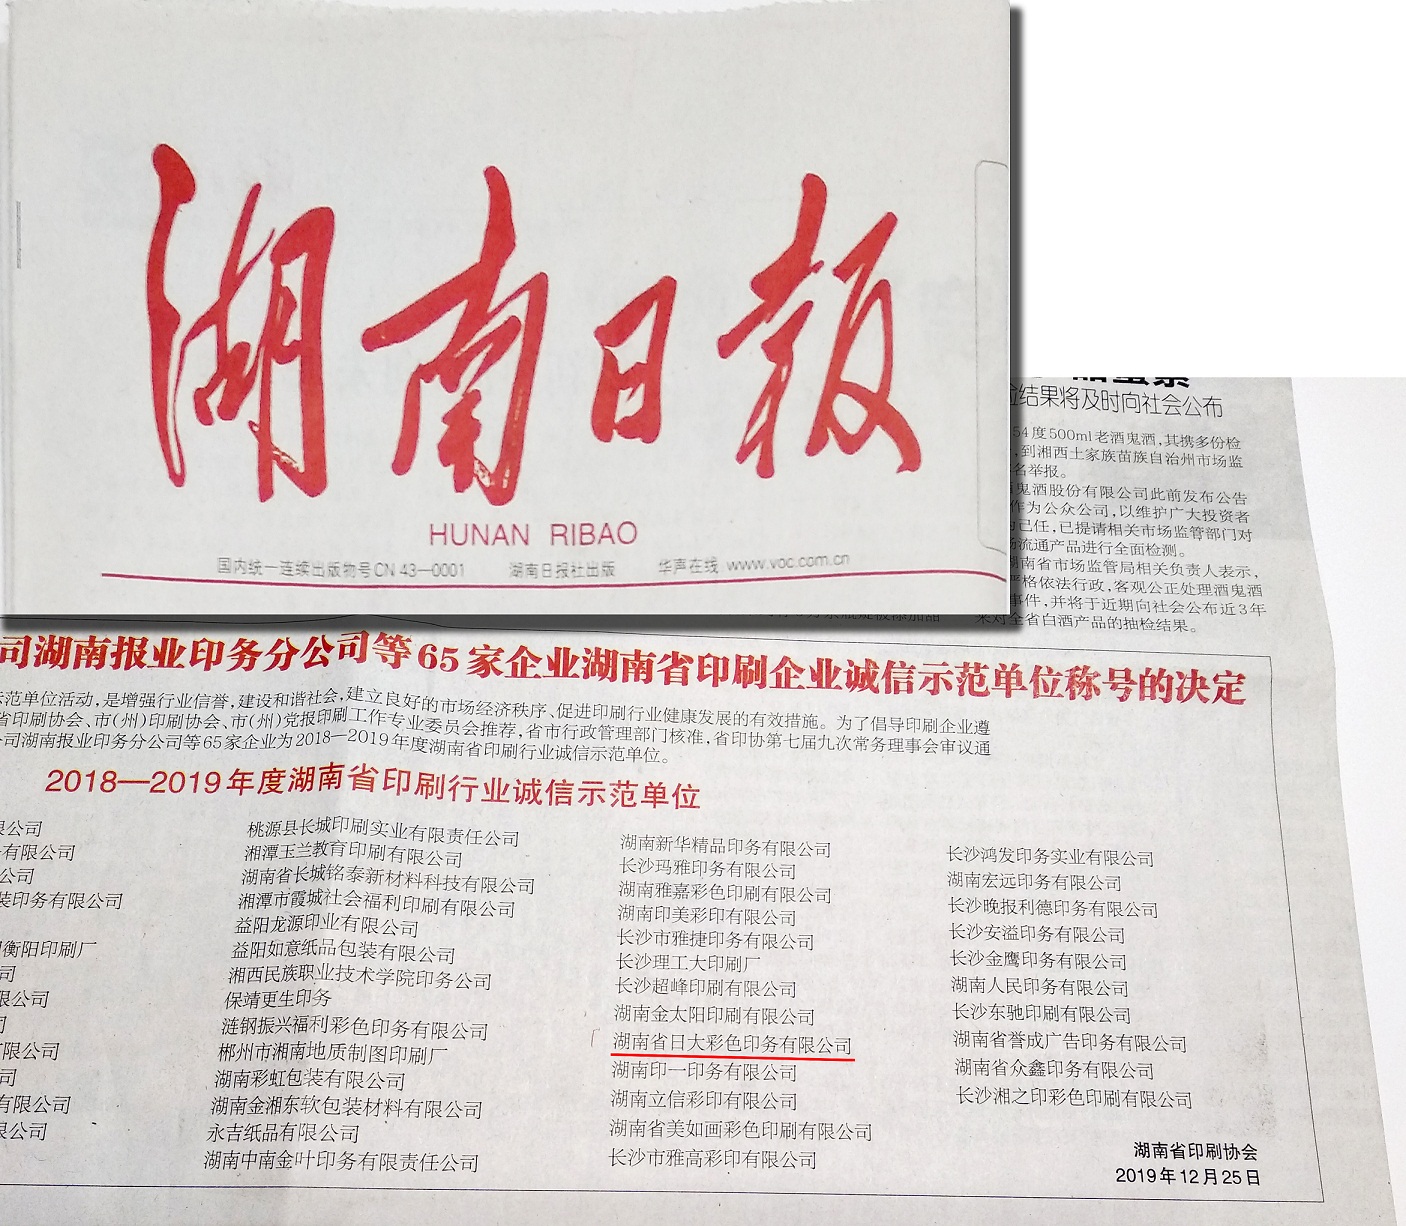 湖南日报
HUNAN RIBAO
国内统一连续出版物号CN 43—0001 湖南日报社出版 华声在线 www.voc.com.cn
结果将及时向社会公布
54度500ml老酒鬼酒,其携多份检
,到湘西土家族苗族自治州市场监
名举报。
鬼酒股份有限公司此前发布公告
作为公众公司,以维护广大投资者
为己任,已提请相关市场监管部门对
场流通产品进行全面检测。
湖南省市场监管局相关负责人表示,
严格依法行政,客观公正处理酒鬼酒
事件,并将于近期向社会公布近3年
来对全省白酒产品的抽检结果。
司湖南报业印务分公司等65家企业湖南省印刷企业诚信示范单位称号的决定
示范单位活动,是增强行业信誉,建设和谐社会,建立良好的市场经济秩序、促进印刷行业健康发展的有效措施。为了倡导印刷企业遵
省印刷协会、市(州)印刷协会、市(州)党报印刷工作专业委员会推荐,省市行政管理部门核准,省印协第七届九次常务理事会审议通
公司湖南报业印务分公司等65家企业为2018—2019年度湖南省印刷行业诚信示范单位。
2018—2019年度湖南省印刷行业诚信示范单位
限公司
有限公司
公司
装印务有限公司
衡阳印刷厂
司
限公司
司
有限公司
司
有限公司
限公司
桃源县长城印刷实业有限责任公司
湘潭玉兰教育印刷有限公司
湖南省长城铭泰新材料科技有限公司
湘潭市霞城社会福利印刷有限公司
益阳龙源印业有限公司
益阳如意纸品包装有限公司
湘西民族职业技术学院印务公司
保靖更生印务
涟钢振兴福利彩色印务有限公司
郴州市湘南地质制图印刷厂
湖南彩虹包装有限公司
湖南金湘东软包装材料有限公司
永吉纸品有限公司
湖南中南金叶印务有限责任公司
湖南新华精品印务有限公司
长沙玛雅印务有限公司
湖南雅嘉彩色印刷有限公司
湖南印美彩印有限公司
长沙市雅捷印务有限公司
长沙理工大印刷厂
长沙超峰印刷有限公司
湖南金太阳印刷有限公司
湖南省日大彩色印务有限公司
湖南印一印务有限公司
湖南立信彩印有限公司
湖南省美如画彩色印刷有限公司
长沙市雅高彩印有限公司
长沙鸿发印务实业有限公司
湖南宏远印务有限公司
长沙晚报利德印务有限公司
长沙安溢印务有限公司
长沙金鹰印务有限公司
湖南人民印务有限公司
长沙东驰印务有限公司
湖南省誉成广告印务有限公司
湖南省众鑫印务有限公司
长沙湘之印彩色印刷有限公司
湖南省印刷协会
2019年12月25日